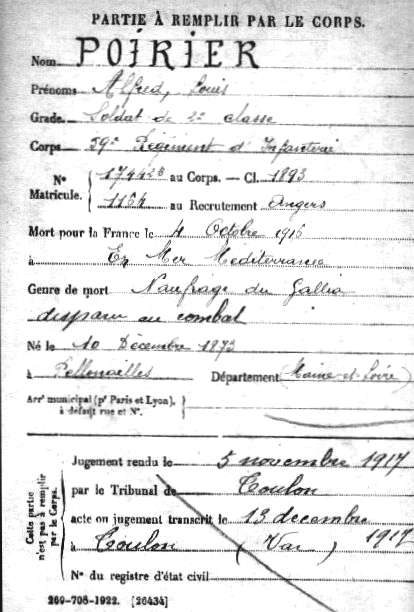 PARTIE À REMPLIR PAR LE CORPS.
Nom POIRIER
Prénoms Alfred, Louis
Grade Soldat de 2e classe
Corps 39e Régiment d'Infanterie
Nos Matricule. { 174428 au Corps. — Cl. 1893
1164 au Recrutement Angers
Mort pour la France le 4 Octobre 1916
à En Mer Méditerranée
Genre de mort Naufrage du Gallia
disparu au combat
Né le 10 Décembre 1873
à Pellouailles Département (Maine-et-Loire)
Arrt municipal (pr Paris et Lyon), }
à défaut rue et No.
Cette partie n'est pas à remplir par le Corps.
Jugement rendu le 5 novembre 1917
par le Tribunal de Toulon
acte ou jugement transcrit le 13 décembre 1917
à Toulon (Var)
No du registre d'état civil
269-708-1922. [26434]